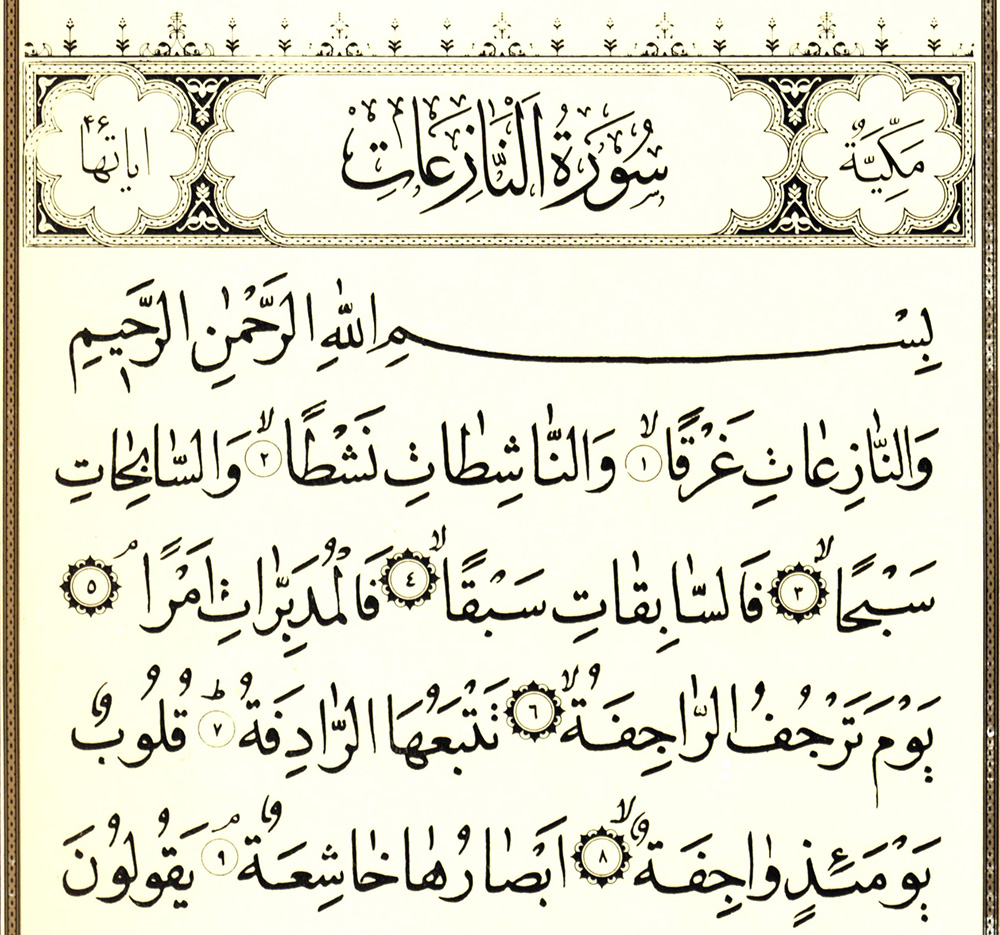 مَكِّيَّةٌ سُورَةُ النَّازِعَاتِ اياتها ۴۶
بِسْمِ اللّٰهِ الرَّحْمٰنِ الرَّحيمِ
وَالنَّازِعَاتِ غَرْقًاۙ ١ وَالنَّاشِطَاتِ نَشْطًاۙ ٢ وَالسَّابِحَاتِ
سَبْحًاۙ ٣ فَالسَّابِقَاتِ سَبْقًاۙ ٤ فَالْمُدَبِّرَاتِ اَمْرًاۢ ٥
يَوْمَ تَرْجُفُ الرَّاجِفَةُۙ ٦ تَتْبَعُهَا الرَّادِفَةُۜ ٧ قُلُوبٌ
يَوْمَئِذٍ وَاجِفَةٌۙ ٨ اَبْصَارُهَا خَاشِعَةٌۢ ٩ يَقُولُونَ